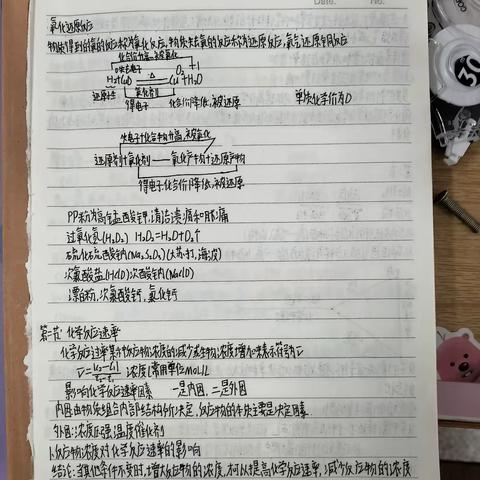 Date. No.
氧化还原反应
物质得到的氧的反应称为氧化反应,物质失去氧的反应称为还原反应,氧与还原专同反应
化合价升高,被氧化
0失去电子 0 +1
H₂+CuO △ Cu+H₂O
还原剂 氧化剂
得电子 化合价降低,被还原 单质化学价为0
失电子化合价升高,被氧化
还原剂+氧化剂——氧化产物+还原产物
得电子化合价降低,被还原
PP粉为高锰酸钾,清洁溃疡和脓疡
过氧化氢(H₂O₂) H₂O₂=H₂O+O₂↑
硫代硫酸钠(Na₂S₂O₃)(大苏打,海波)
次氯酸盐(HClO)次酸钠(NaClO)
漂白粉,次氯酸钙,氯化钙
第二节 化学反应速率
化学反应速率某个反应物浓度的减少或生物浓度增加来表示符号v
浓度(常用单位mol/L
影响化学反应速率因素 一是内因,二是外因
内因由物质组合内部结构所决定,反应物的本质主要是决定因素.
外因:浓度压强,温度催化剂
1.反应物浓度对化学反应速率的影响
结论:当其他条件不变时,增大反应物的浓度,可以提高化学反应速率,减少反应物的浓度
30